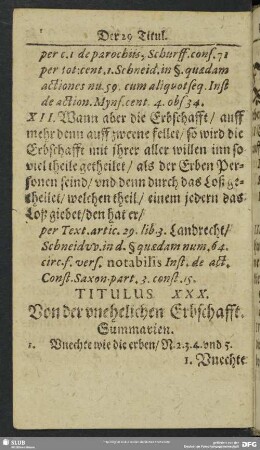 Der 29 Titul.
per c. 1 de parochiis, Schurff. cons. 71
per tot: cent. 1. Schneid. in §. quædam
actiones nu. 59. cum aliquot seq. Inst
de action. Myns. cent. 4. obs 34.
XII. Wann aber die Erbschafft / auff
mehr denn auff zweene fellet / so wird die
Erbschafft mit jhrer aller willen inn so
viel theile getheilet / als der Erben Per-
sonen seind / vnd denn durch das Loß ge-
theilet / welchen theil / einem jedern das
Loß giebet / den hat er /
per Text. artic. 29. lib. 3. Landrecht /
Schneidvv. in d. § quædam num. 64.
circ. f. vers. notabilis Inst. de act.
Const. Saxon. part. 3. const. 15.
TITULUS XXX.
Von der vnehelichen Erbschafft.
Summarien.
1. Vnechte wie die erben / N. 2. 3. 4. vnd 5.
1. Vnechte
SLUB
DFG